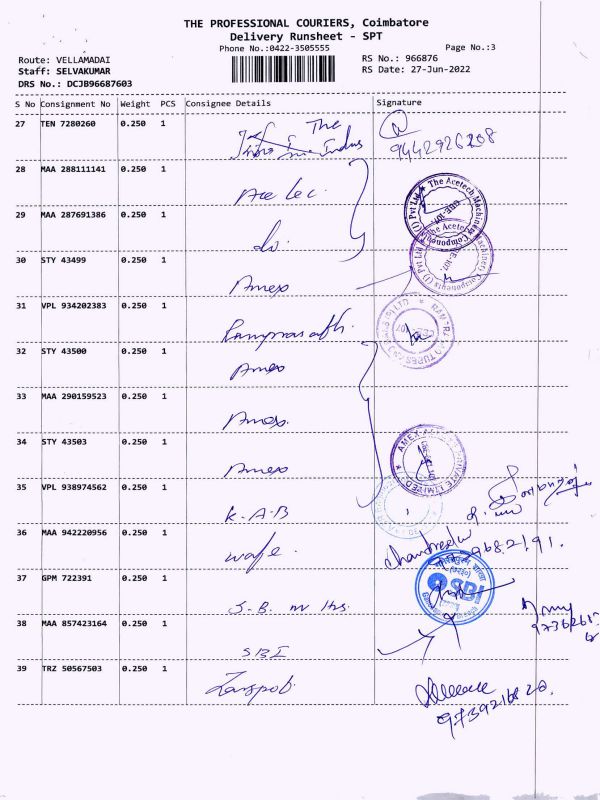 THE PROFESSIONAL COURIERS, Coimbatore
Delivery Runsheet - SPT
Phone No.:0422-3505555
Page No.:3
Route: VELLAMADAI
RS No.: 966876
Staff: SELVAKUMAR
RS Date: 27-Jun-2022
DRS No.: DCJB96687603
S No Consignment No Weight PCS Consignee Details Signature
27 TEN 7280260 0.250 1 The
9442926208
28 MAA 288111141 0.250 1 Ace lec.
29 MAA 287691386 0.250 1 do.
30 STY 43499 0.250 1 Amex
31 VPL 934202383 0.250 1 Ramprasath.
32 STY 43500 0.250 1 Amex
33 MAA 290159523 0.250 1 Amex.
34 STY 43503 0.250 1 Amex
35 VPL 938974562 0.250 1 K.A.B
36 MAA 942220956 0.250 1 wafe.
37 GPM 722391 0.250 1 S.B. M Hrs.
SBI
38 MAA 857423164 0.250 1 SBI
39 TRZ 50567503 0.250 1
9739216820.